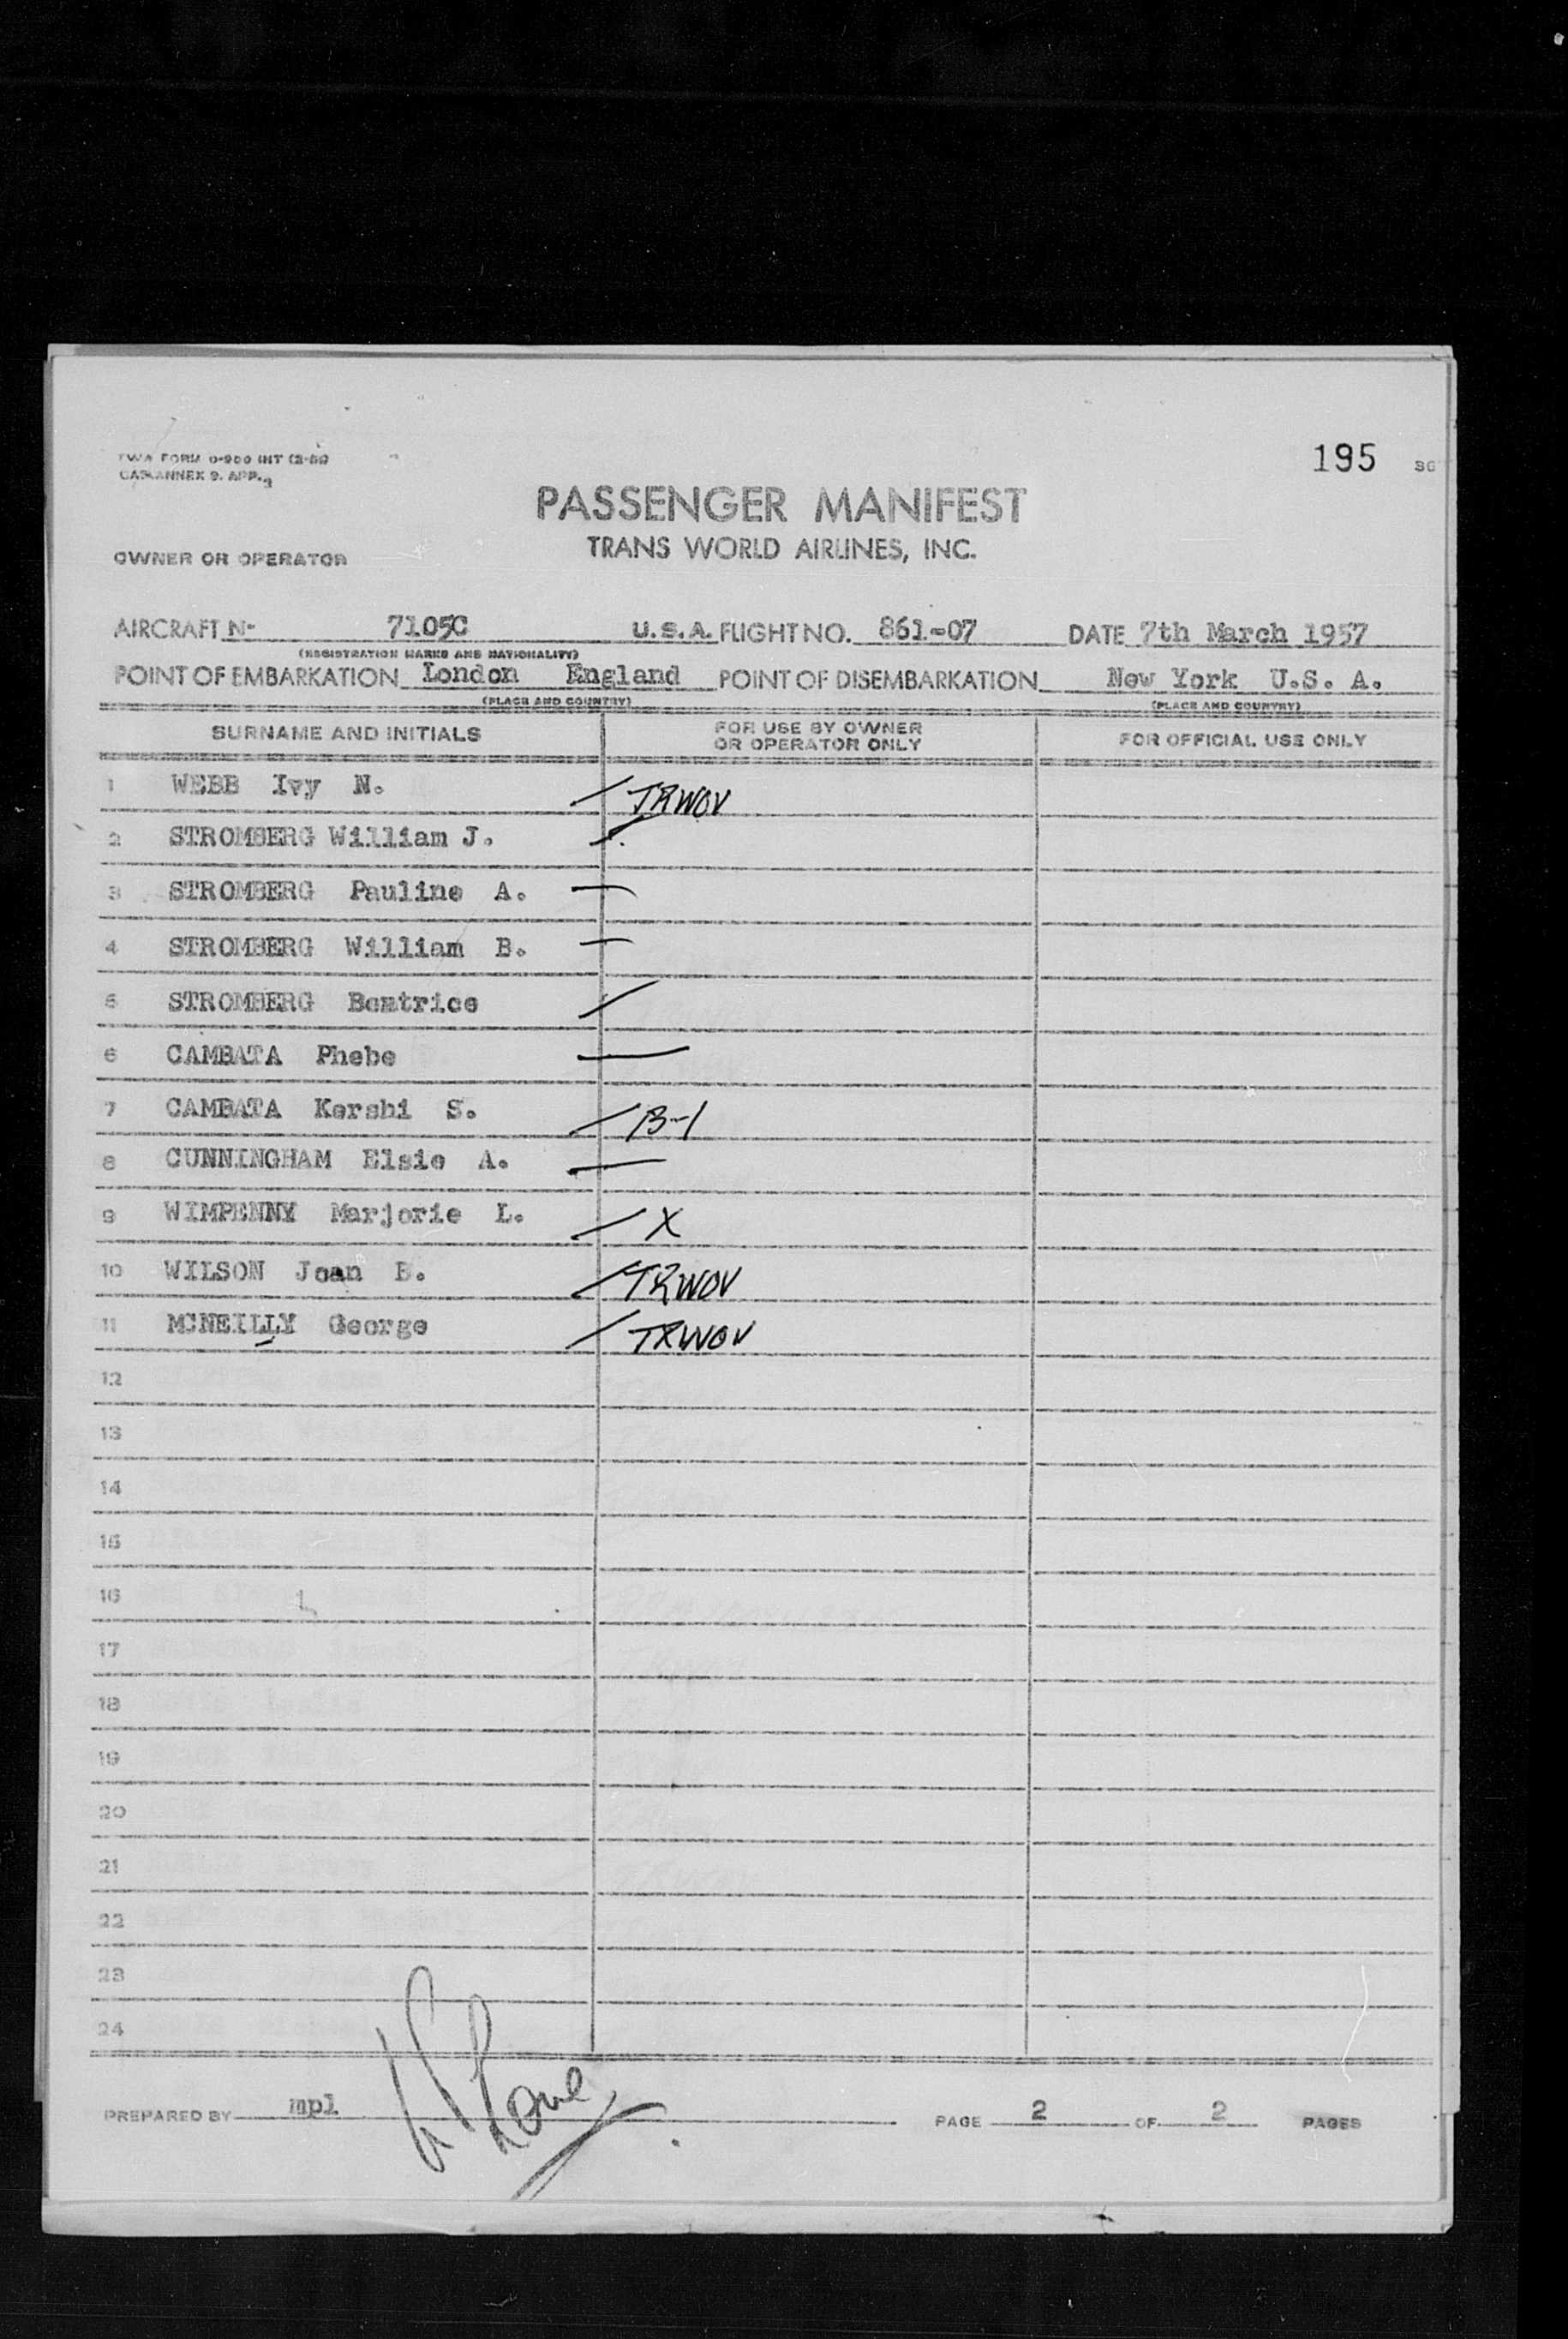 195
TWA FORM 0-900 INT
PASSENGER MANIFEST
TRANS WORLD AIRLINES, INC.
OWNER OR OPERATOR
AIRCRAFT N- 7105C U.S.A. FLIGHT NO. 861-07 DATE 7th March 1957
(REGISTRATION MARKS AND NATIONALITY)
POINT OF EMBARKATION London England POINT OF DISEMBARKATION New York U.S. A.
(PLACE AND COUNTRY) (PLACE AND COUNTRY)
SURNAME AND INITIALS FOR USE BY OWNER OR OPERATOR ONLY FOR OFFICIAL USE ONLY
1 WEBB Ivy N. TRWOV
2 STROMBERG William J.
3 STROMBERG Pauline A.
4 STROMBERG William B.
5 STROMBERG Beatrice
6 CAMBATA Phebe
7 CAMBATA Kershi S. B-1
8 CUNNINGHAM Elsie A.
9 WIMPENNY Marjorie L. X
10 WILSON Joan B. TRWOV
11 MCNEILLY George TRWOV
12
13
14
15
16
17
18
19
20
21
22
23
24
PREPARED BY mpl PAGE 2 OF 2 PAGES